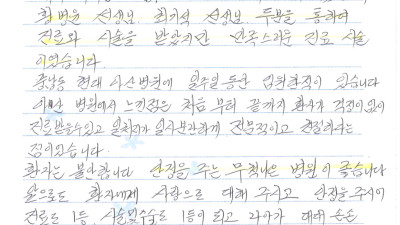 황병윤 선생님 최기석 선생님 두분을 통하여
진료와 시술을 받았지만 만족스러운 진료 시술
이었습니다
풍납동 현대 아산병원에 일주일 동안 입원한적이 있습니다
아산 병원에서 느낀점은 처음 부터 끝까지 환자가 걱정이없이
진료받을수있고 일처리가 일사분란하게 전문적이고 친절하다는
점이었습니다.
환자는 불안합니다 안정을 주는 무척나은 병원이 좋습니다
앞으로도 환자에게 사랑으로 대해 주시고 안정을 주시어
진료도 1등, 시술및수술도 1등이 되고 나아가 대매